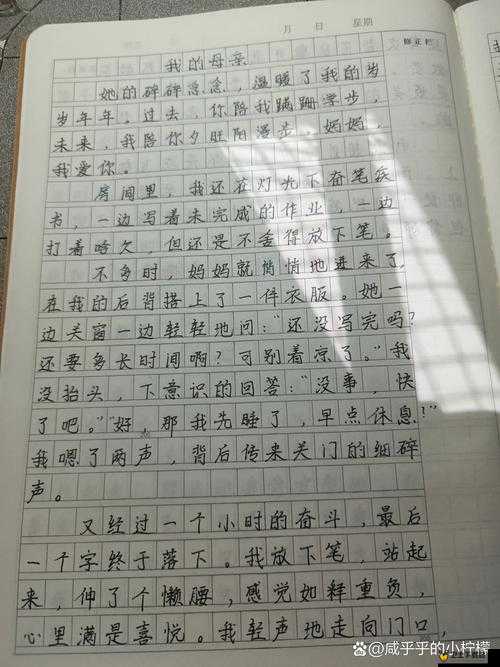 月 日 星期
修正栏
我的母亲
她的碎碎念念，温暖了我的岁
岁年年。过去，你陪我蹒跚学步，
未来，我陪你夕阳漫步，妈妈，
我爱你。
房间里，我还在灯光下奋笔疾
书，一边写着未完成的作业，一边
打着哈欠，但还是不舍得放下笔。
不多时，妈妈就悄悄地进来了，
在我的后背搭上了一件衣服。她一
边关窗一边轻轻地问：“还没写完吗？
还要多长时间啊？可别着凉了。”我
没抬头，下意识的回答：“没事，快
了吧。”“好，那我先睡了，早点休息！”
我嗯了两声，背后传来关门的细碎
声。
又经过一个小时的奋斗，最后
一个字终于落下。我放下笔，站起
来，伸了个懒腰，感觉如释重负，
心里满是喜悦。我轻声地走向门口，
百家号/咸乎乎的小柠檬